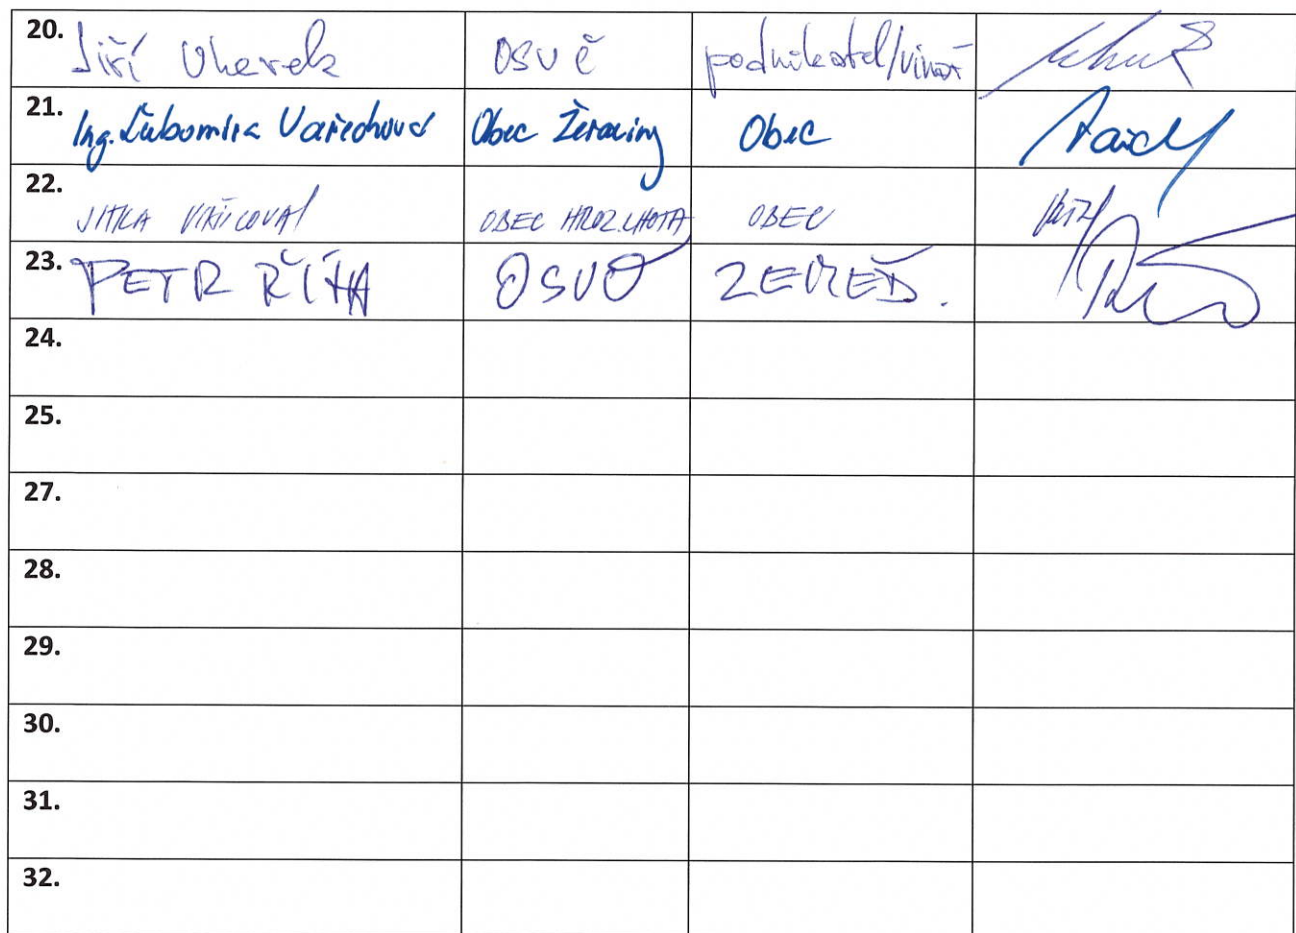 20. Jiří Uherek OSVČ podnikatel/vinař
21. Ing. Ľubomíra Vařechová Obec Žeraviny Obec
22. JITKA OBEC HROZ. LHOTA OBEC
23. PETR ŘÍHA OSVČ ZEMĚD.
24.
25.
27.
28.
29.
30.
31.
32.